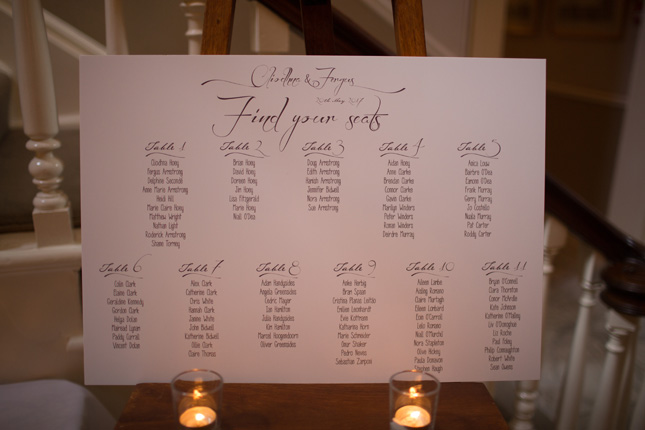 Cliodhna & Fergus
Find your seats
Table 1
Cliodhna Hoey
Fergus Armstrong
Delphine Seconak
Anne Marie Armstrong
Heidi Hill
Marie Claire Hoey
Matthew Wright
Nathan Light
Roderick Armstrong
Shane Torney
Table 2
Brian Hoey
David Hoey
Doreen Hoey
Jim Hoey
Lisa Fitzgerald
Marie Hoey
Niall O'Dea
Table 3
Doug Armstrong
Edith Armstrong
Hamish Armstrong
Jennifer Bidwell
Nora Armstrong
Sue Armstrong
Table 4
Aidan Hoey
Anne Clarke
Brendan Clarke
Connor Clarke
Gavin Clarke
Marilyn Winders
Peter Winders
Ronan Winders
Deirdre Murray
Table 5
Anica
Barbra O'Dea
Eamonn O'Dea
Frank Murray
Gerry Murray
Jo Costello
Nuala Murray
Pat Carter
Roddy Carter
Table 6
Colin Clark
Elaine Clark
Geraldine Kennedy
Gordon Clark
Helga Dolan
Mairead Lyson
Paddy Carroll
Vincent Dolan
Table 7
Alex Clark
Catherine Clark
Chris White
Hannah Clark
Janine White
John Bidwell
Katherine Bidwell
Ollie Clark
Claire Thomas
Table 8
Adam Handysides
Angela Greensides
Cedric Mayer
Ian Hamilton
Julia Handysides
Kim Hamilton
Marcel Hoogendoorn
Oliver Greensides
Table 9
Anke Herbig
Brian Spisan
Cristina Maria
Emilian Leonhardt
Eva Kottmann
Katharina Horn
Marie Schneider
Omar Shaker
Pedro Neves
Sebastian Zampow
Table 10
Aileen Lanke
Aisling Romano
Claire Murtagh
Eileen Lenhart
Evan O'Carroll
Lelio Romano
Niall O'Murchú
Nora Stapleton
Olive Hickey
Paula Donovan
Stephen Haugh
Table 11
Bryan O'Connell
Ciara Thornton
Conor McArdle
Kate Johnson
Katherine O'Malley
Liv O'Donoghue
Liz Roche
Paul Tobey
Philip Connaughton
Robert White
Sean Owens